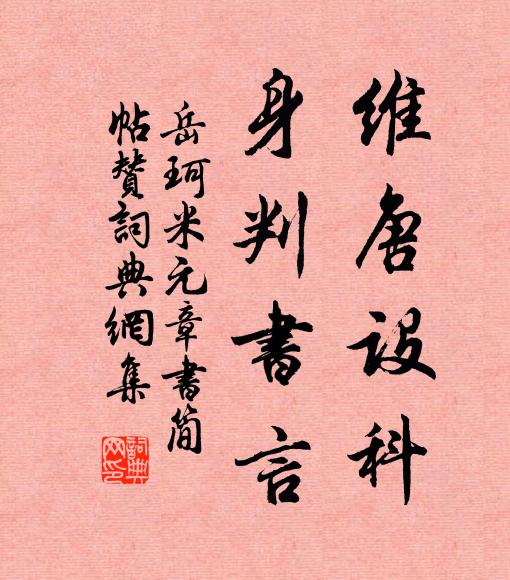 維唐設科
身判書言
岳珂米元章書簡
帖贊詞典網集
詞典
网印